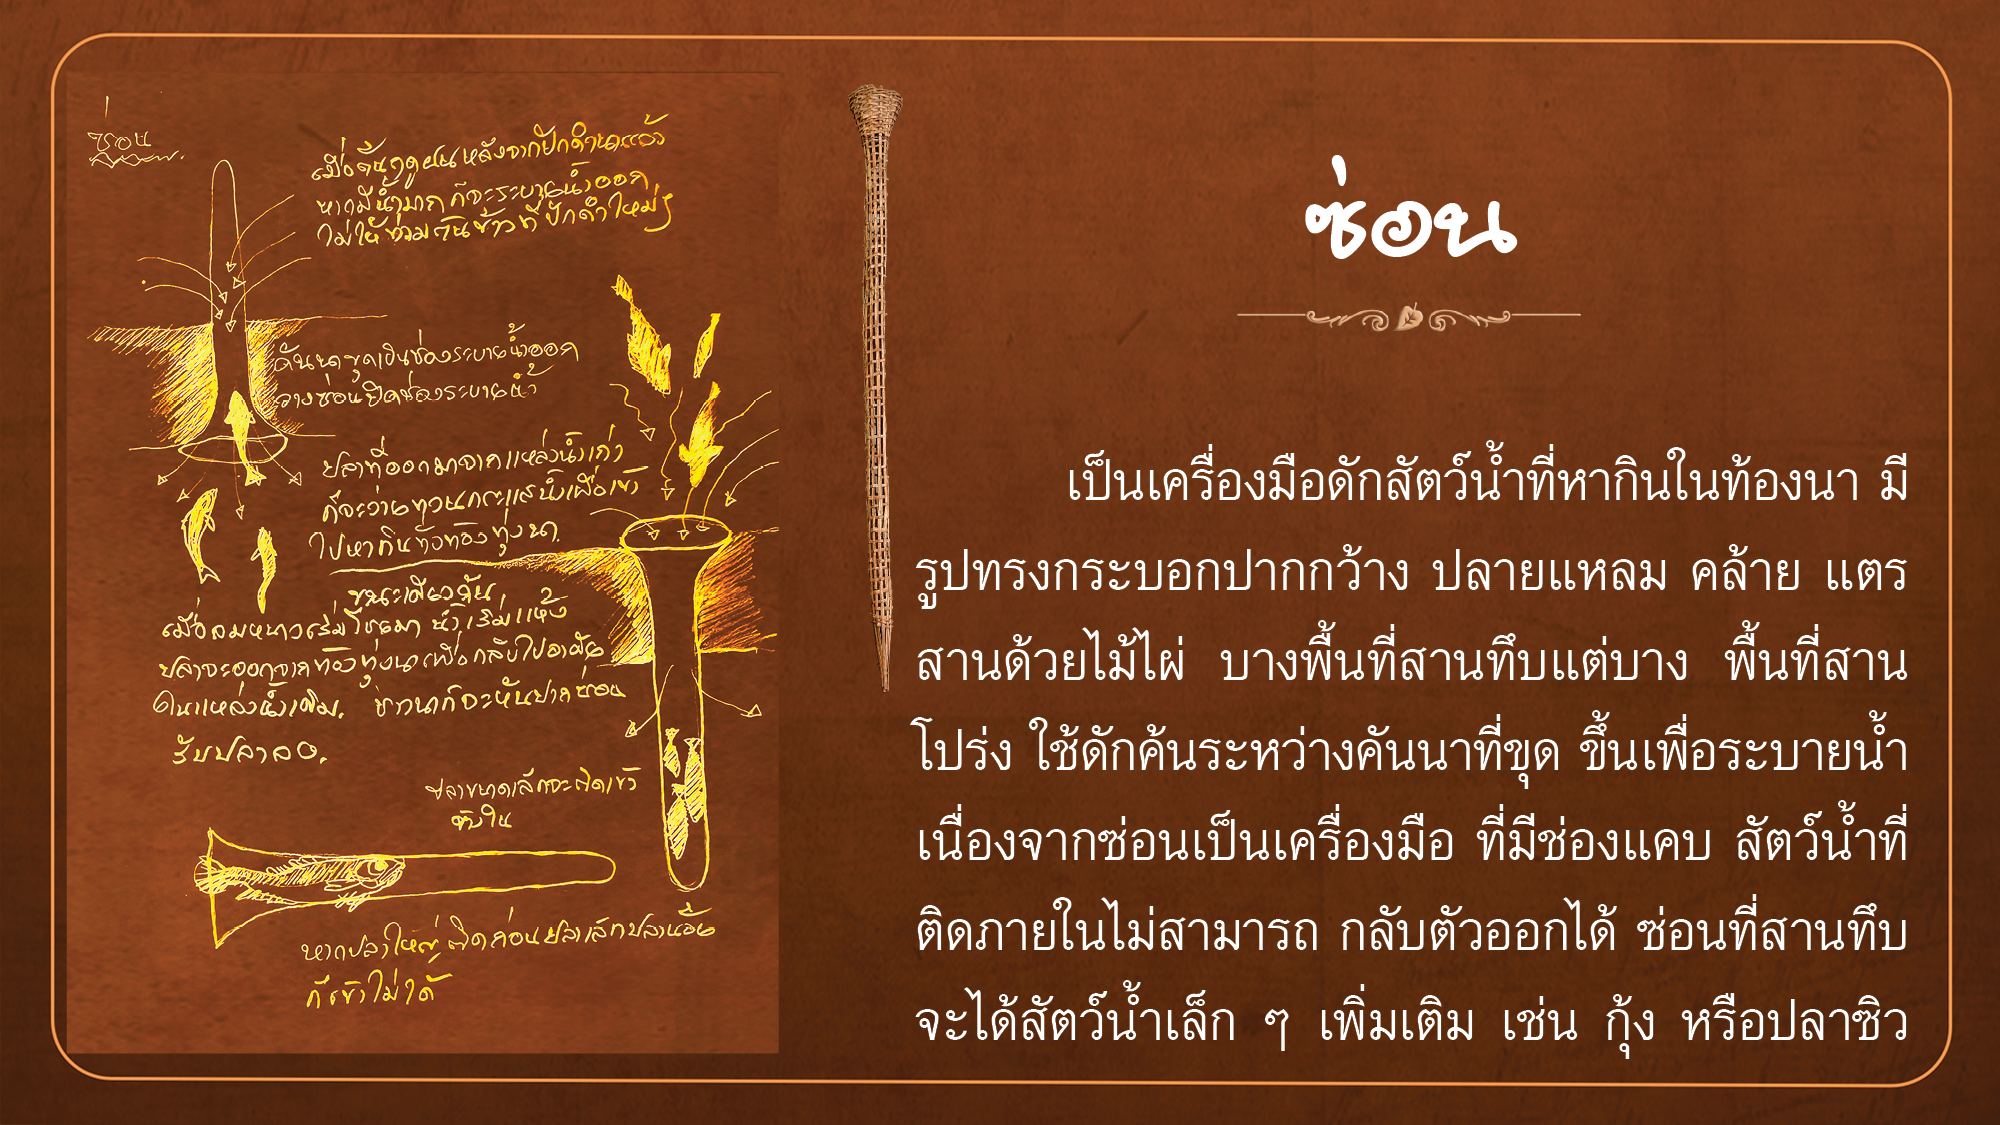 ซ่อน
เมื่อต้นฤดูฝนหลังจากปักดำนาแล้ว
หากมีน้ำมากก็จะระบายน้ำออก
ไม่ให้ท่วมต้นข้าวที่ปักดำใหม่ๆ
คันนาขุดเป็นช่องระบายน้ำออก
วางซ่อนปิดช่องระบายน้ำ
ปลาที่ออกมาจากแหล่งน้ำเก่า
ก็จะว่ายทวนกระแสน้ำเพื่อเข้า
ไปหากินทั่วท้องทุ่งนา
ขณะเดียวกัน
เมื่อลมหนาวเริ่มโชยมา น้ำเริ่มแห้ง
ปลาจะออกจากท้องทุ่งนาเพื่อกลับไปอาศัย
ในแหล่งน้ำเดิม. ชาวนาก็จะหันปากซ่อน
รับปลาลง.
ปลาขนาดเล็กจะติดเข้า
ข้างใน
หากปลาใหญ่ติดก่อนปลาเล็กปลาน้อย
ก็เข้าไม่ได้
ซ่อน
เป็นเครื่องมือดักสัตว์น้ำที่หากินในท้องนา มี
รูปทรงกระบอกปากกว้าง ปลายแหลม คล้าย แตร
สานด้วยไม้ไผ่ บางพื้นที่สานทึบแต่บาง พื้นที่สาน
โปร่ง ใช้ดักค้นระหว่างคันนาที่ขุด ขึ้นเพื่อระบายน้ำ
เนื่องจากซ่อนเป็นเครื่องมือ ที่มีช่องแคบ สัตว์น้ำที่
ติดภายในไม่สามารถ กลับตัวออกได้ ซ่อนที่สานทึบ
จะได้สัตว์น้ำเล็ก ๆ เพิ่มเติม เช่น กุ้ง หรือปลาซิว